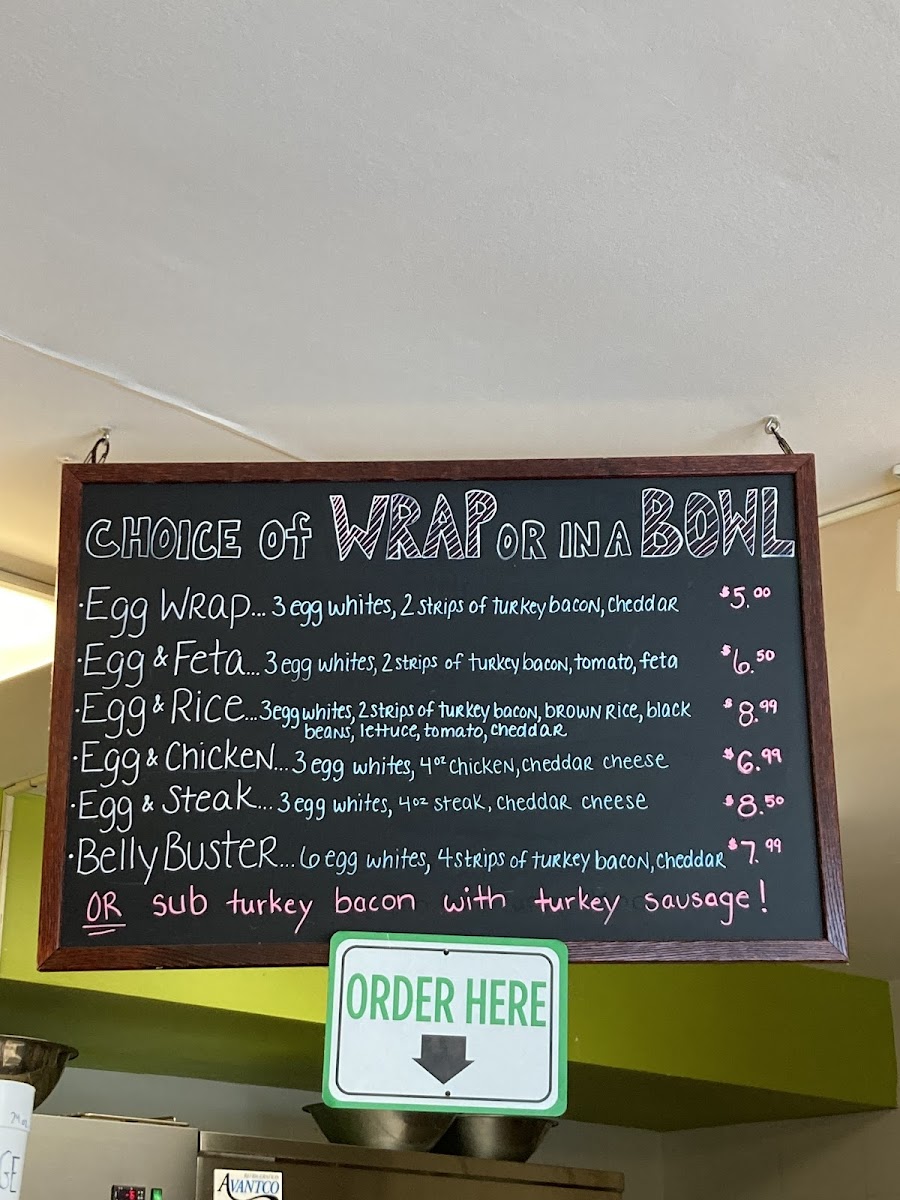 CHOICE of WRAP OR IN A BOWL
·Egg WRap... 3 egg whites, 2 strips of turkey bacon, cheddar $5.00
·Egg & Feta... 3 egg whites, 2 strips of turkey bacon, tomato, feta $6.50
·Egg & Rice... 3 egg whites, 2 strips of turkey bacon, BROWN Rice, black
beans, lettuce, tomato, cheddar $8.99
·Egg & Chicken... 3 egg whites, 4oz chicken, cheddar cheese $6.99
·Egg & Steak... 3 egg whites, 4oz steak, cheddar cheese $8.50
·Belly Buster... 6 egg whites, 4 strips of turkey bacon, cheddar $7.99
OR sub turkey bacon with turkey sausage!
ORDER HERE
AVANTCO
GE